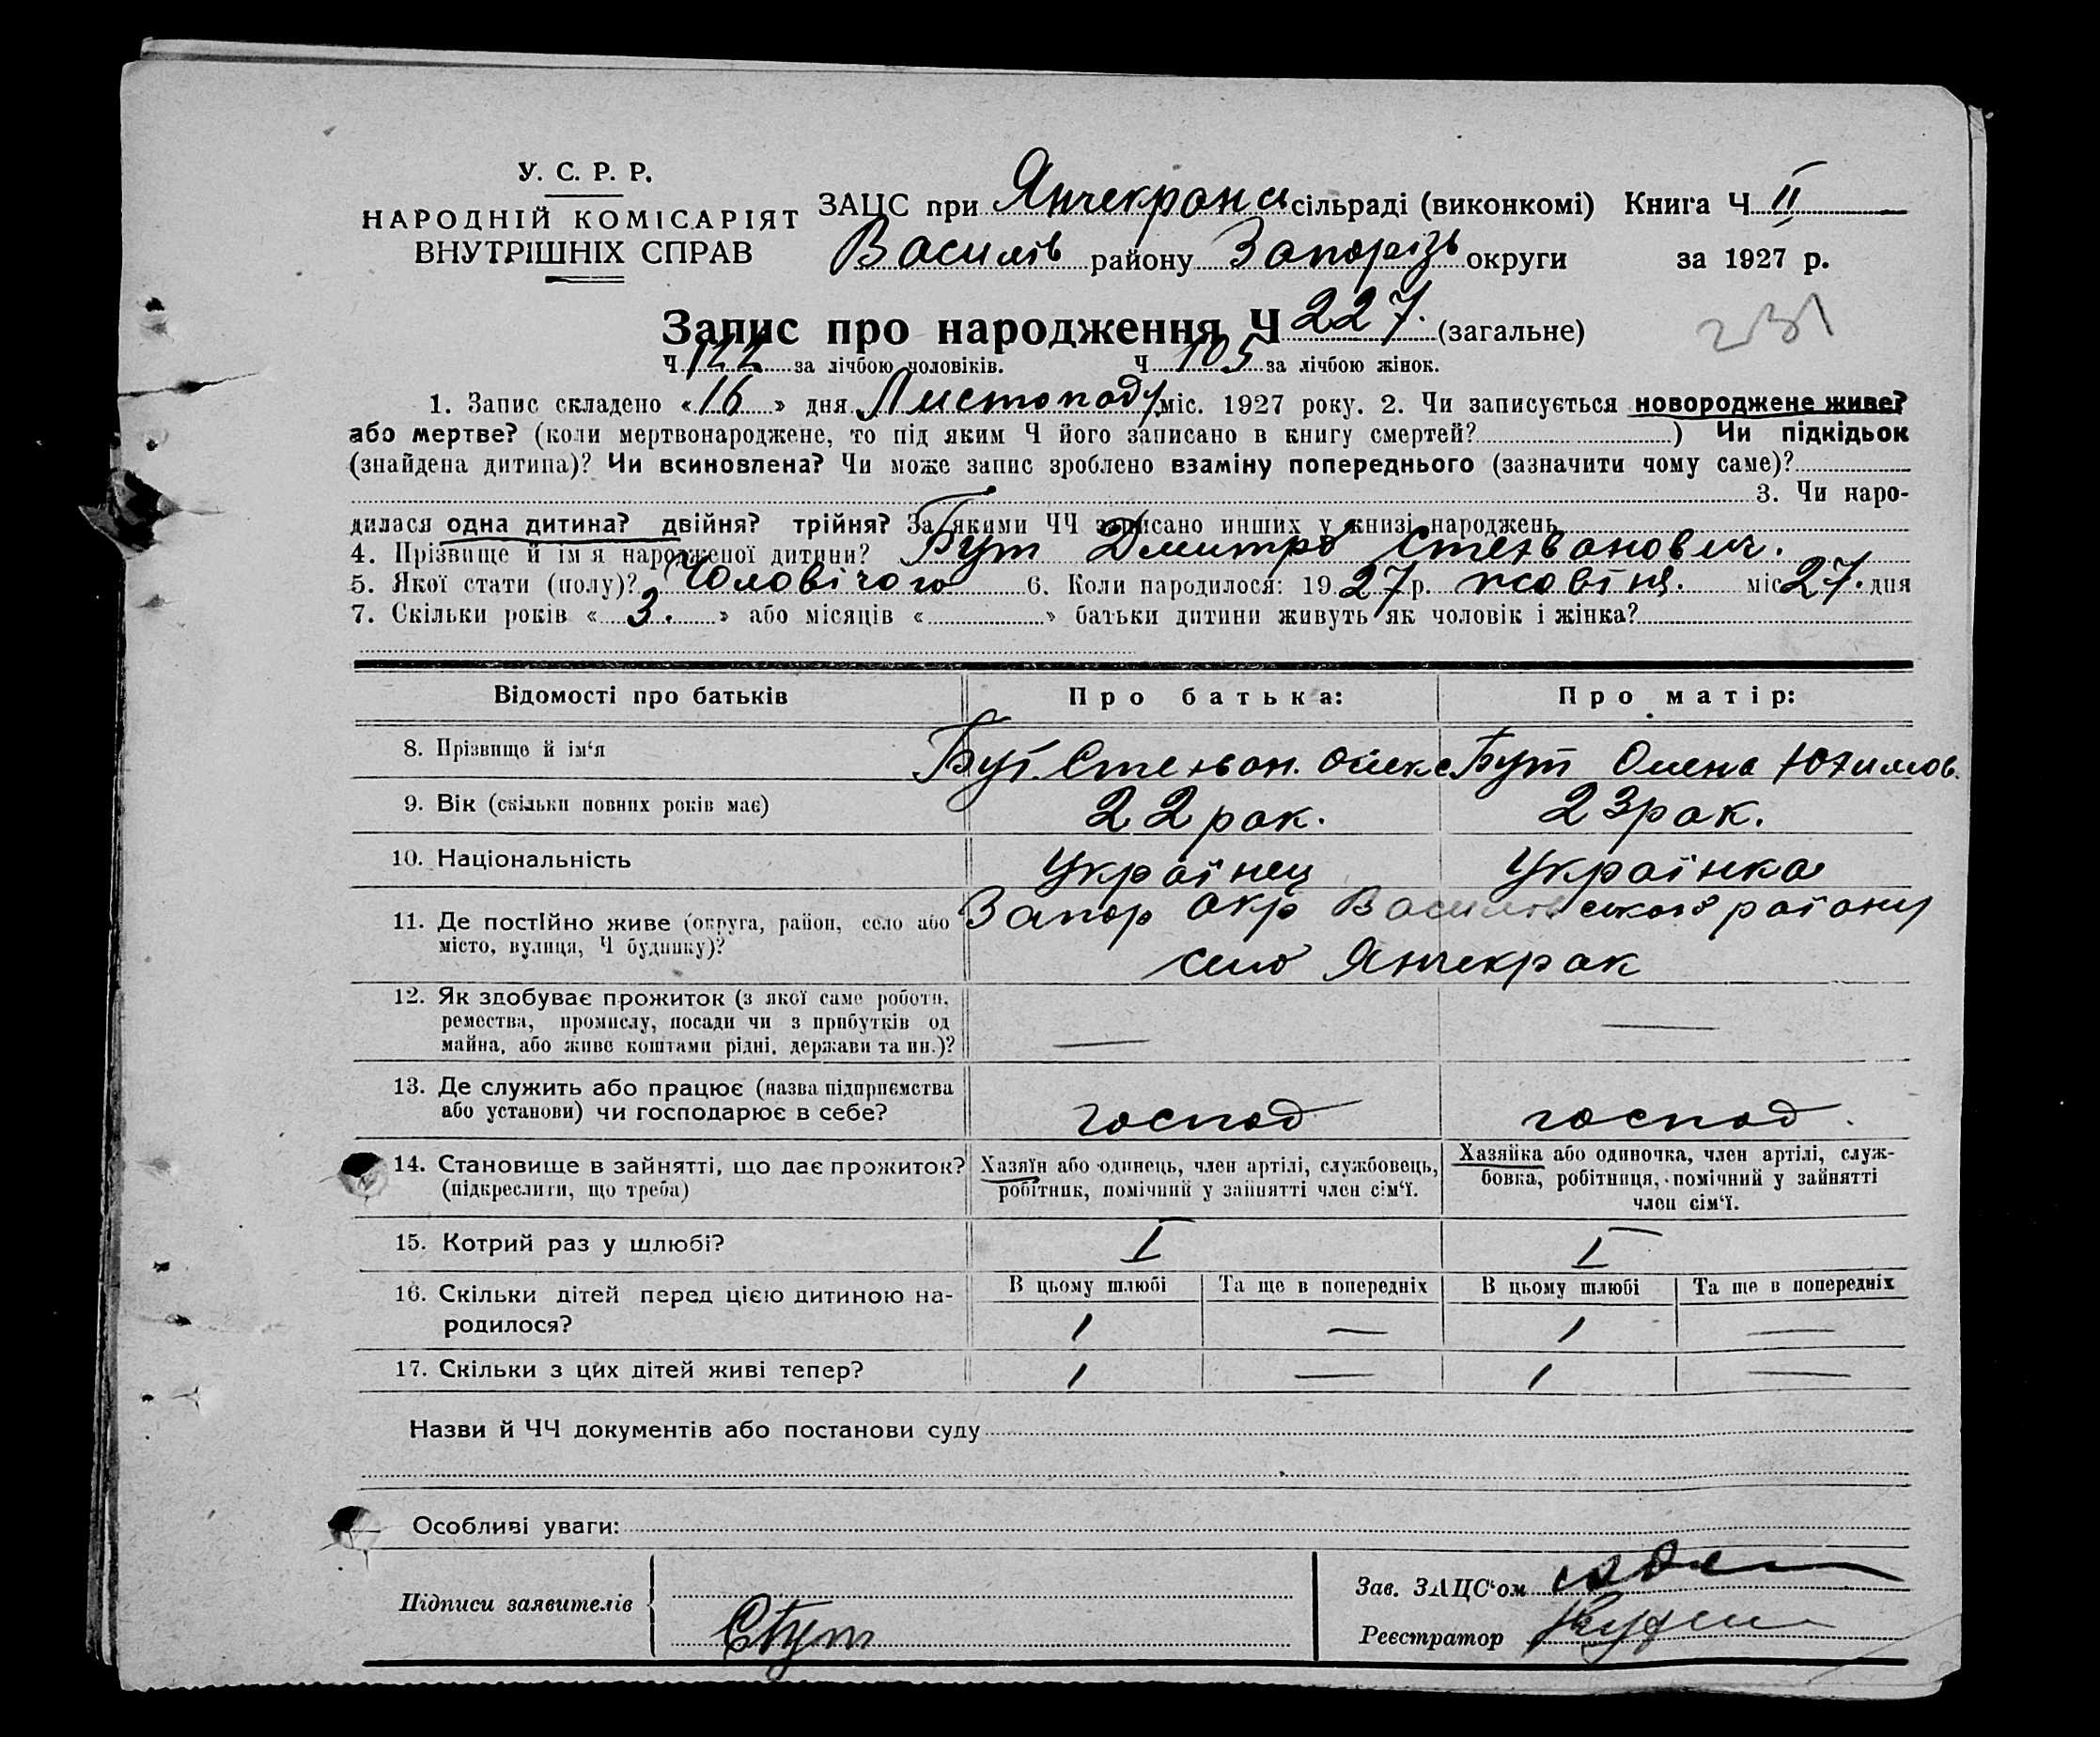 У. С. Р. Р.
НАРОДНІЙ КОМІСАРІЯТ
ВНУТРІШНІХ СПРАВ
ЗАЦС при Янчекракс сільраді (виконкомі) Книга Ч II
Василів району Запоріз округи за 1927 р.
Запис про народження Ч 227. (загальне)
231
Ч 122 за лічбою чоловіків. Ч 105 за лічбою жінок.
1. Запис складено «16» дня Листопаду міс. 1927 року. 2. Чи записується новороджене живе?
або мертве? (коли мертвонароджене, то під яким Ч його записано в книгу смертей? ) Чи підкідьок
(знайдена дитина)? Чи всиновлена? Чи може запис зроблено взаміну попереднього (зазначити чому саме)?
3. Чи наро-
дилася одна дитина? двійня? трійня? За якими ЧЧ записано инших у книзі народжень
4. Прізвище й ім'я народженої дитини? Бут Дмитро Степанович.
5. Якої стати (полу)? Чоловічого 6. Коли народилося: 1927 р. жовтня. міс 27. дня
7. Скільки років «3.» або місяців « » батьки дитини живуть як чоловік і жінка?
Відомості про батьків Про батька: Про матір:
8. Прізвище й ім'я Бут. Степан. Олекс Бут Олена Юхимов.
9. Вік (скільки повних років має) 22 рок. 23 рок.
10. Національність Українец Українка
11. Де постійно живе (округа, район, село або Запор окр Василівського району
місто, вулиця, Ч будинку)? село Янчекрак
12. Як здобуває прожиток (з якої саме роботи,
ремества, промислу, посади чи з прибутків од
майна, або живе коштами рідні, держави та ин.)? — —
13. Де служить або працює (назва підприємства
або установи) чи господарює в себе? господ господ.
14. Становище в зайнятті, що дає прожиток?
(підкреслити, що треба)
Хазяїн або одинець, член артілі, службовець,
робітник, помічний у зайнятті член сім'ї.
Хазяйка або одиночка, член артілі, служ-
бовка, робітниця, помічний у зайнятті
член сім'ї.
15. Котрий раз у шлюбі? I I
16. Скільки дітей перед цією дитиною на-
родилося?
В цьому шлюбі Та ще в попередніх В цьому шлюбі Та ще в попередніх
1 — 1 —
17. Скільки з цих дітей живі тепер? 1 — 1 —
Назви й ЧЧ документів або постанови суду
Особливі уваги:
Підписи заявителів
СБут
Зав. ЗАЦС'ом
Реєстратор